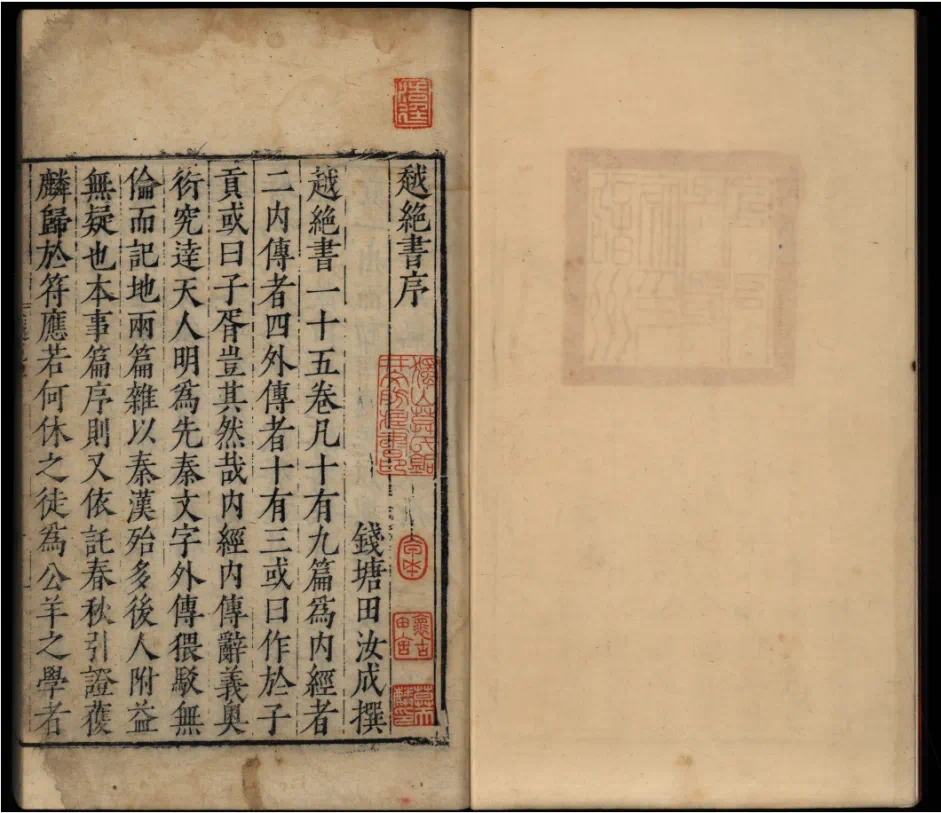 越絕書序
錢塘田汝成撰
越絕書一十五卷凡十有九篇爲内經者
二内傳者四外傳者十有三或曰作於子
貢或曰子胥豈其然哉内經内傳辭義奥
衍究達天人明爲先秦文字外傳猥駁無
倫而記地兩篇雜以秦漢殆多後人附益
無疑也本事篇序則又依託春秋引證獲
麟歸於符應若何休之徒爲公羊之學者